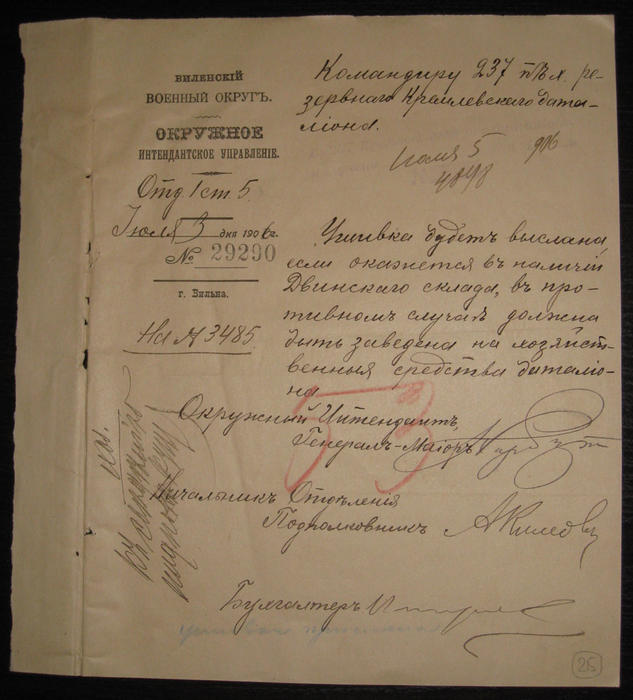 ВИЛЕНСКІЙ
ВОЕННЫЙ ОКРУГЪ.
ОКРУЖНОЕ
ИНТЕНДАНТСКОЕ УПРАВЛЕНІЕ.
Отд 1 ст. 5.
Іюля 3 дня 1906 г.
№ 29290
г. Вильна.
На № 3485.
Командиру 237 пѣх. ре-
зервнаго Кремлевскаго бата-
ліона.
Іюля 5 906
4898
Ушивка будетъ выслана,
если окажется въ наличіи
Двинскаго склада, въ про-
тивномъ случаѣ должна
быть заведена на хозяйст-
венныя средства баталіо-
на.
Окружный Интендантъ,
Генералъ-Маіоръ
Начальникъ Отдѣленія
Подполковникъ
Бухгалтеръ
25